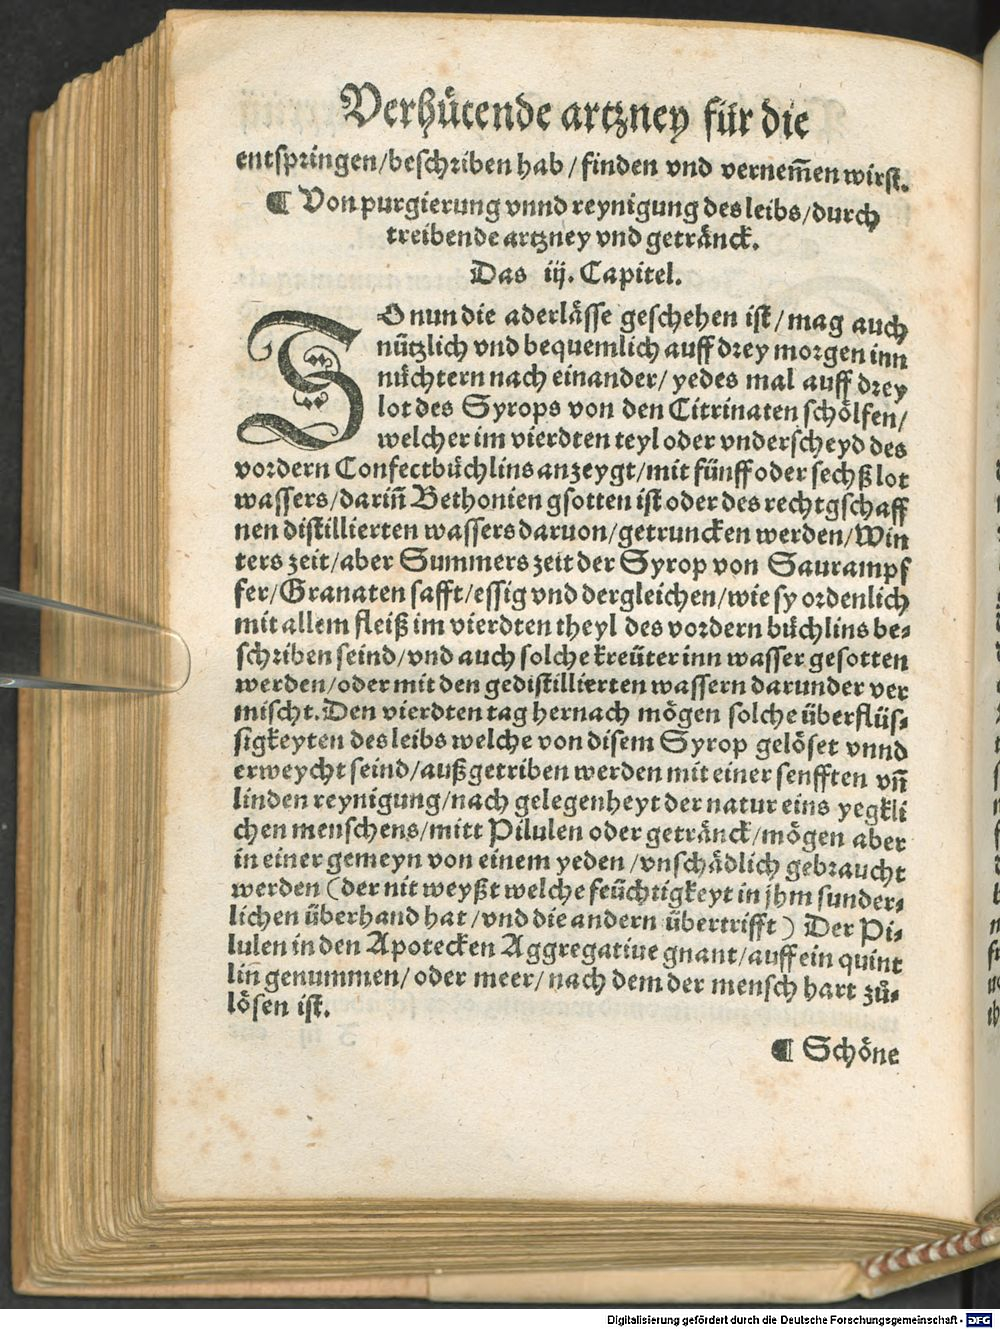 Verhütende artzney für die
entspringen/beschriben hab/finden vnd vernem̃en wirst.
¶ Von purgierung vnnd reynigung des leibs/durch
treibende artzney vnd getränck.
Das iij. Capitel.
SO nun die aderlässe geschehen ist/mag auch
nützlich vnd bequemlich auff drey morgen inn
nüchtern nach einander/ yedes mal auff drey
lot des Syrops von den Citrinaten schölfen/
welcher im vierdten teyl oder vnderscheyd des
vordern Confectbüchlins anzeygt/mit fünff oder sechß lot
wassers/dariñ Bethonien gsotten ist oder des rechtgschaff
nen distillierten wassers daruon/getruncken werden/Win
ters zeit/aber Summers zeit der Syrop von Saurampf
fer/Granaten safft/essig vnd dergleichen/wie sy ordenlich
mit allem fleiß im vierdten theyl des vordern büchlins be-
schriben seind/vnd auch solche kreüter inn wasser gesotten
werden/oder mit den gedistillierten wassern darunder ver
mischt. Den vierdten tag hernach mögen solche überflüs-
sigkeyten des leibs welche von disem Syrop gelöset vnnd
erweycht seind/außgetriben werden mit einer senfften vñ
linden reynigung/nach gelegenheyt der natur eins yegkli
chen menschens/mitt Pilulen oder getränck/mögen aber
in einer gemeyn von einem yeden/vnschädlich gebraucht
werden (der nit weyßt welche feüchtigkeyt in jhm sunder-
lichen überhand hat/vnd die andern übertrifft) Der Pi-
lulen in den Apotecken Aggregatiue gnant/auff ein quint
lin genummen/oder meer/nach dem der mensch hart zů-
lösen ist.
¶ Schöne
Digitalisierung gefördert durch die Deutsche Forschungsgemeinschaft - DFG